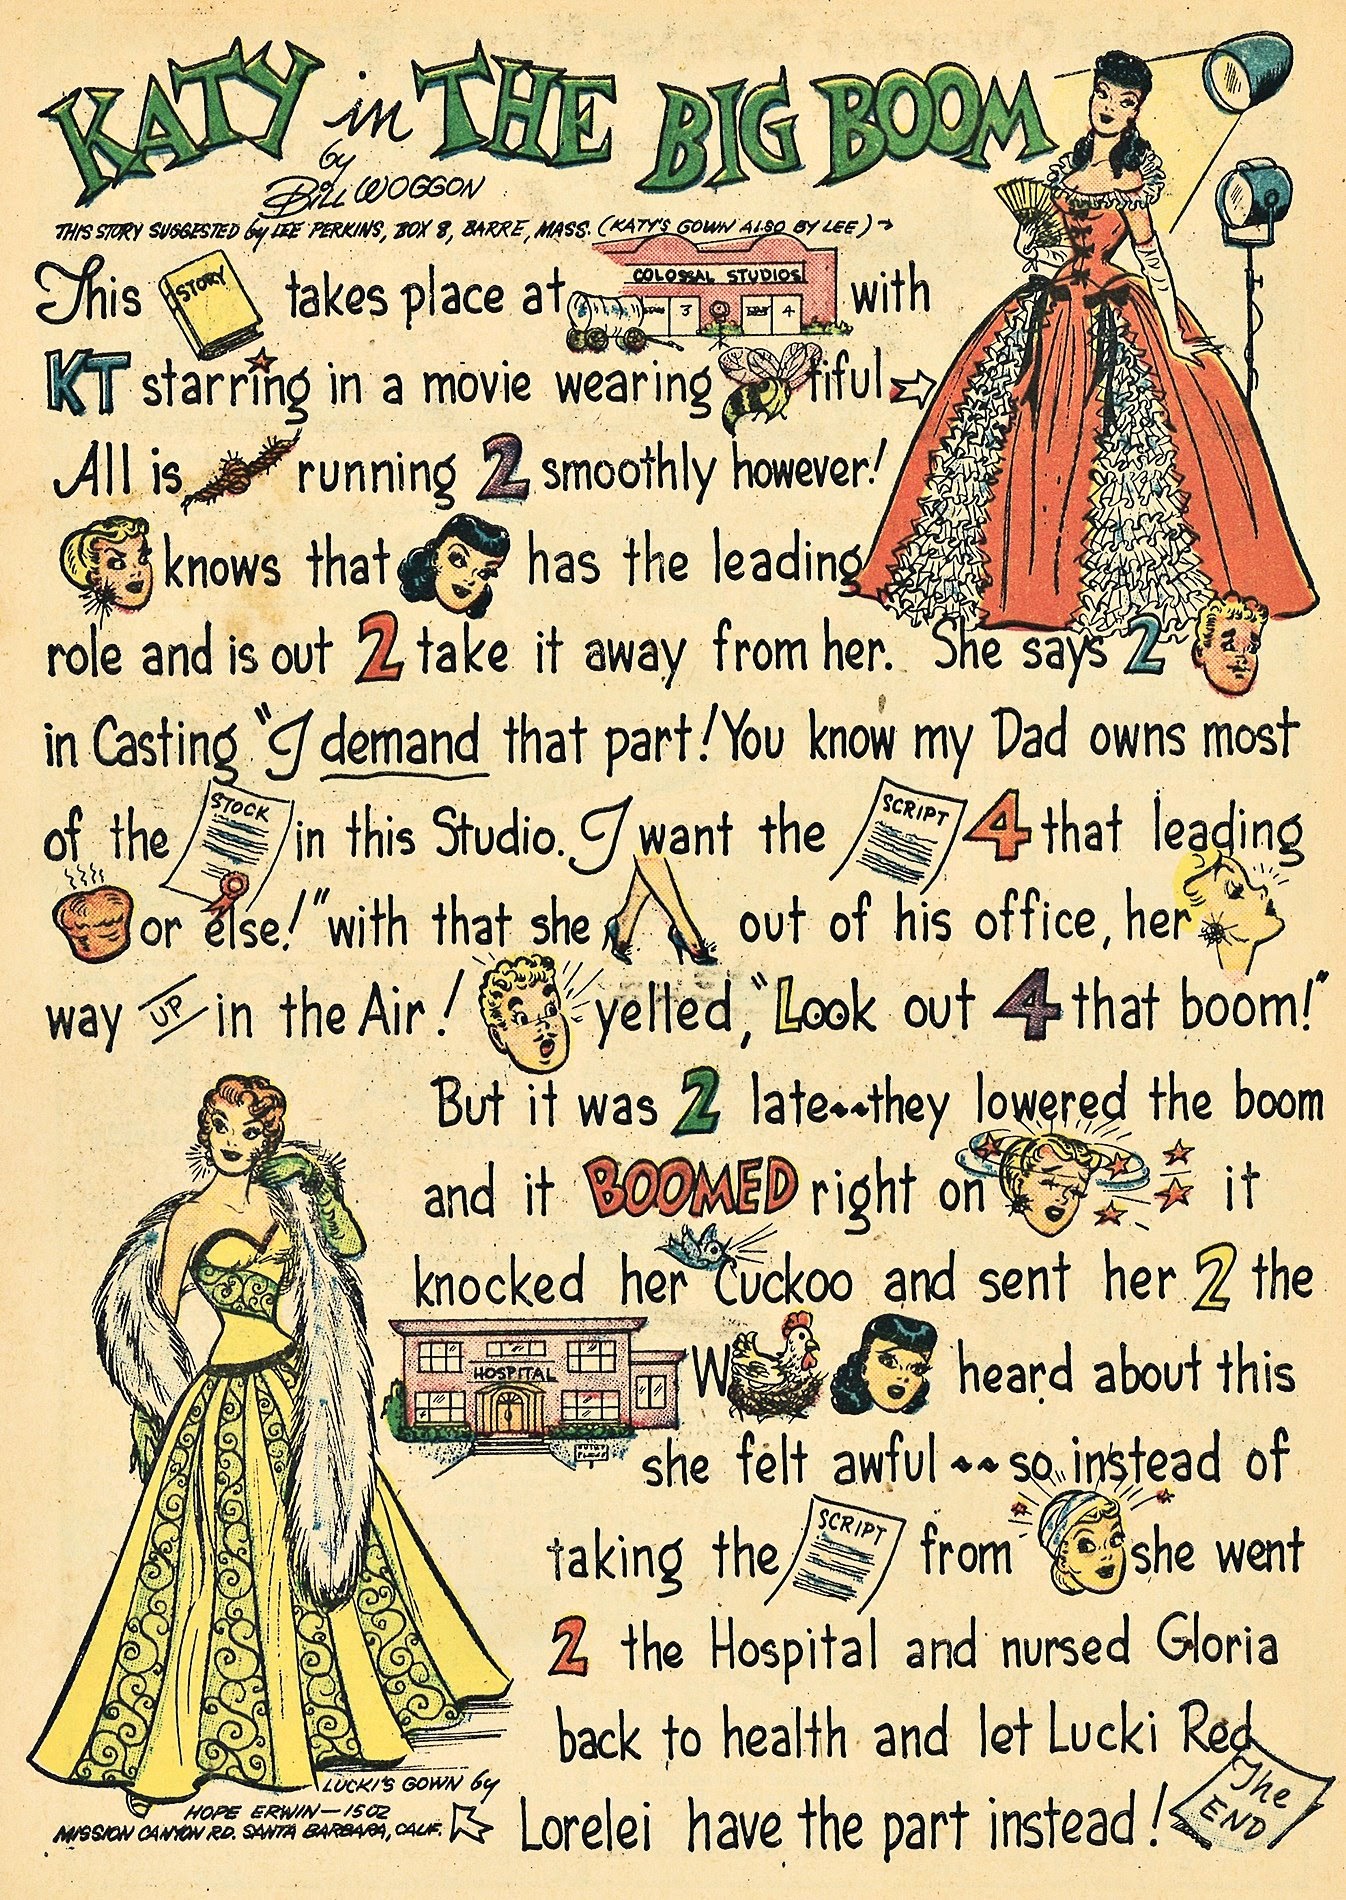 KATY in THE BIG BOOM
by
Bill WOGGON
THIS STORY SUGGESTED by LEE PERKINS, BOX 8, BARRE, MASS. (KATY'S GOWN ALSO BY LEE)
This STORY takes place at COLOSSAL STUDIOS 3 4 with
KT starring in a movie wearing tiful
All is running 2 smoothly however!
knows that has the leading
role and is out 2 take it away from her. She says 2
in Casting "I demand that part! You know my Dad owns most
of the STOCK in this Studio. I want the SCRIPT 4 that leading
or else!" with that she out of his office, her
way UP in the Air! yelled, "Look out 4 that boom!"
But it was 2 late~~they lowered the boom
and it BOOMED right on it
knocked her Cuckoo and sent her 2 the
HOSPITAL W heard about this
she felt awful ~~ so instead of
taking the SCRIPT from she went
2 the Hospital and nursed Gloria
back to health and let Lucki Red
Lorelei have the part instead!
The END
LUCKI'S GOWN by
HOPE ERWIN—1502
MISSION CANYON RD. SANTA BARBARA, CALIF.